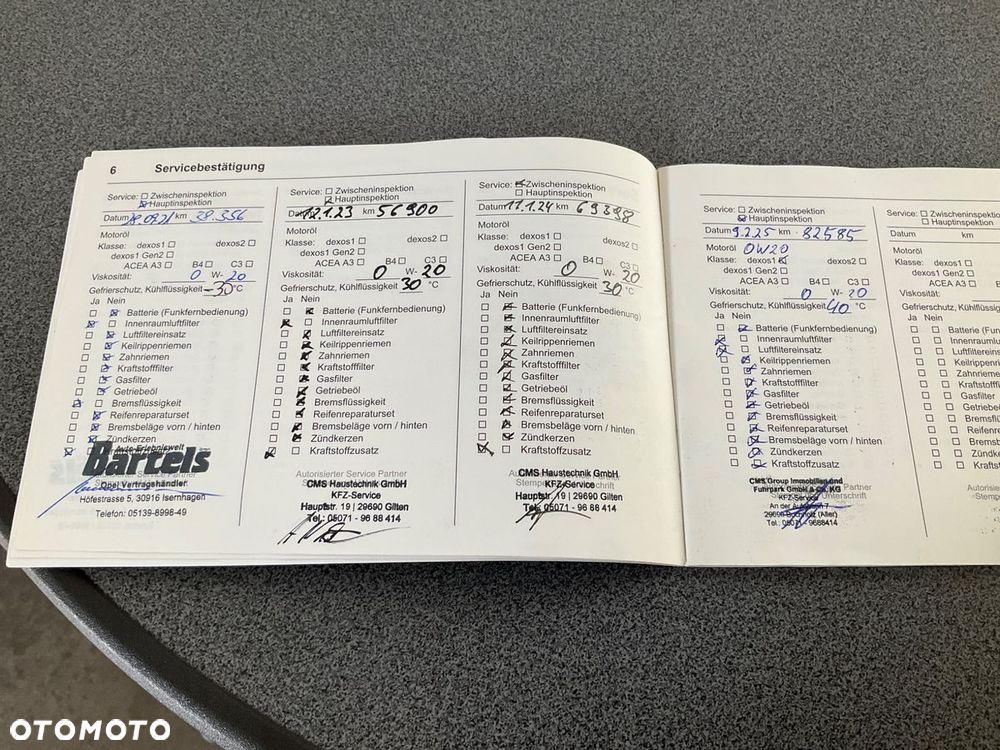 6 Servicebestätigung
Service: Zwischeninspektion
Hauptinspektion
Datum km 28.356
Motoröl
Klasse: dexos1 dexos2
dexos1 Gen2
ACEA A3 B4 C3
Viskosität: 0 W- 20
Gefrierschutz, Kühlflüssigkeit -30 °C
Ja Nein
Batterie (Funkfernbedienung)
Innenraumluftfilter
Luftfiltereinsatz
Keilrippenriemen
Zahnriemen
Kraftstofffilter
Gasfilter
Getriebeöl
Bremsflüssigkeit
Reifenreparaturset
Bremsbeläge vorn / hinten
Zündkerzen
Auto-Erlebniswelt
Bartels
Opel Vertragshändler
Höfestrasse 5, 30916 Isernhagen
Telefon: 05139-8998-49
Service: Zwischeninspektion
Hauptinspektion
12.1.23 km 56900
Motoröl
Klasse: dexos1 dexos2
dexos1 Gen2
ACEA A3 B4 C3
Viskosität: 0 W- 20
Gefrierschutz, Kühlflüssigkeit 30 °C
Ja Nein
Batterie (Funkfernbedienung)
Innenraumluftfilter
Luftfiltereinsatz
Keilrippenriemen
Zahnriemen
Kraftstofffilter
Gasfilter
Getriebeöl
Bremsflüssigkeit
Reifenreparaturset
Bremsbeläge vorn / hinten
Zündkerzen
Kraftstoffzusatz
Autorisierter Service Partner
CMS Haustechnik GmbH
KFZ-Service
Hauptstr. 19 | 29690 Gilten
Tel.: 05071 - 96 88 414
Service: Zwischeninspektion
Hauptinspektion
Datum 11.1.24 km 69398
Motoröl
Klasse: dexos1 dexos2
dexos1 Gen2
ACEA A3 B4 C3
Viskosität: 0 W- 20
Gefrierschutz, Kühlflüssigkeit 30 °C
Ja Nein
Batterie (Funkfernbedienung)
Innenraumluftfilter
Luftfiltereinsatz
Keilrippenriemen
Zahnriemen
Kraftstofffilter
Gasfilter
Getriebeöl
Bremsflüssigkeit
Reifenreparaturset
Bremsbeläge vorn / hinten
Zündkerzen
Kraftstoffzusatz
CMS Haustechnik GmbH
KFZ-Service
Hauptstr. 19 | 29690 Gilten
Tel.: 05071 - 96 88 414
Service: Zwischeninspektion
Hauptinspektion
Datum 9.2.25 km 82585
Motoröl 0W20
Klasse: dexos1 dexos2
dexos1 Gen2
ACEA A3 B4 C3
Viskosität: 0 W- 20
Gefrierschutz, Kühlflüssigkeit 40 °C
Ja Nein
Batterie (Funkfernbedienung)
Innenraumluftfilter
Luftfiltereinsatz
Keilrippenriemen
Zahnriemen
Kraftstofffilter
Gasfilter
Getriebeöl
Bremsflüssigkeit
Reifenreparaturset
Bremsbeläge vorn / hinten
Zündkerzen
Kraftstoffzusatz
CMS Group Immobilien und
Fuhrpark GmbH & Co. KG
KFZ-Service
Tel.: 05071 - 9688414
Service: Zwischeninspektion
Hauptinspektion
Datum km
Motoröl
Klasse: dexos1
dexos1 Gen2
ACEA A3
Viskosität:
Gefrierschutz, Kühlflüssig
Ja Nein
Batterie (Funkfernb
Innenraumluftfilter
Luftfiltereinsatz
Keilrippenriemen
Zahnriemen
Kraftstofffilter
Gasfilter
Getriebeöl
Bremsflüssigkeit
Reifenreparaturs
Bremsbeläge vo
Zündkerzen
Kraftstoffzusatz
Autorisierter
-Stempe
OTOMOTO